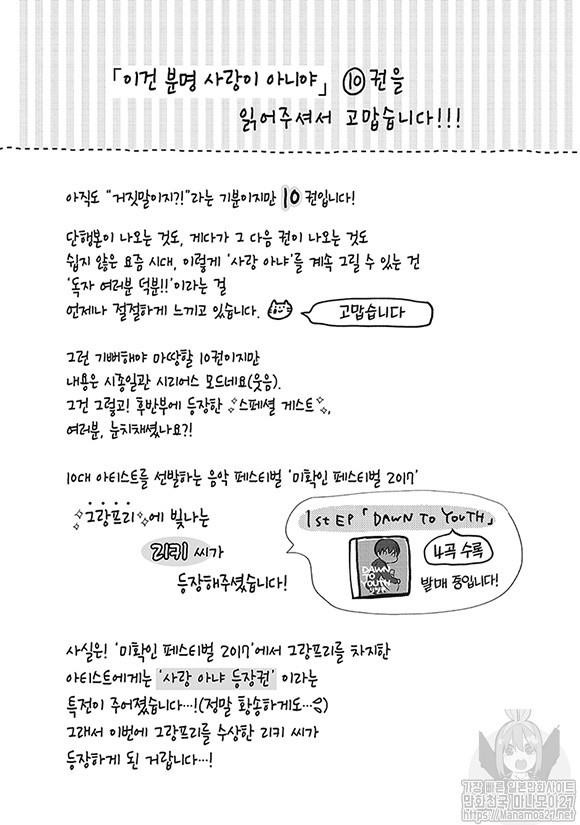 「이건 분명 사랑이 아니야」 ⑩권을
읽어주셔서 고맙습니다!!!
아직도 “거짓말이지?!”라는 기분이지만 10권입니다!
단행본이 나오는 것도, 게다가 그 다음 권이 나오는 것도
쉽지 않은 요즘 시대, 이렇게 ‘사랑 아냐’를 계속 그릴 수 있는 건
‘독자 여러분 덕분!!’이라는 걸
언제나 절절하게 느끼고 있습니다.
고맙습니다
그런 기뻐해야 마땅할 10권이지만
내용은 시종일관 시리어스 모드네요(웃음).
그건 그렇고! 후반부에 등장한 스페셜 게스트,
여러분, 눈치채셨나요?!
10대 아티스트를 선발하는 음악 페스티벌 ‘미확인 페스티벌 2017’
그랑프리에 빛나는
리키 씨가
등장해주셨습니다!
1st EP 「DAWN TO YOUTH」
4곡 수록
발매 중입니다!
DAWN
TO
YOUTH
사실은! ‘미확인 페스티벌 2017’에서 그랑프리를 차지한
아티스트에게는 ‘사랑 아냐 등장권’ 이라는
특전이 주어졌습니다…!(정말 황송하게도…)
그래서 이번에 그랑프리를 수상한 리키 씨가
등장하게 된 거랍니다…!
가장 빠른 일본만화사이트
만화천국 마나모아27
https://Manamoa27.net